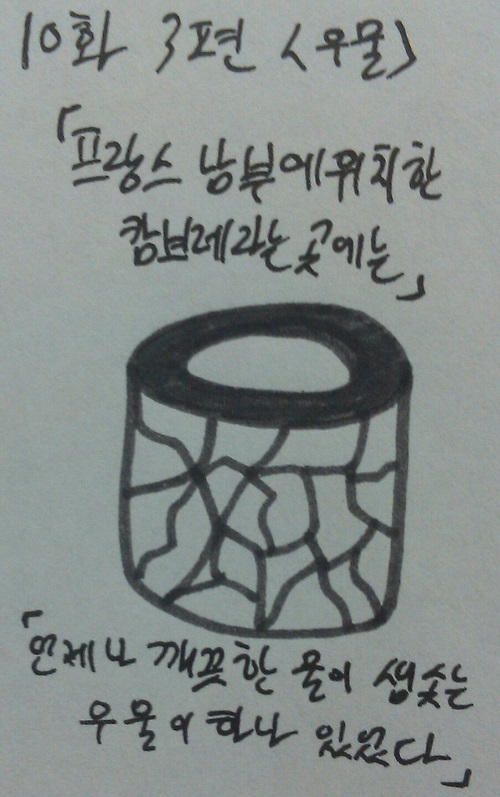 10화 3편 <우물>
「프랑스 남부에 위치한
캄보레라는 곳에는」
「언제나 깨끗한 물이 샘솟는
우물이 하나 있었다」